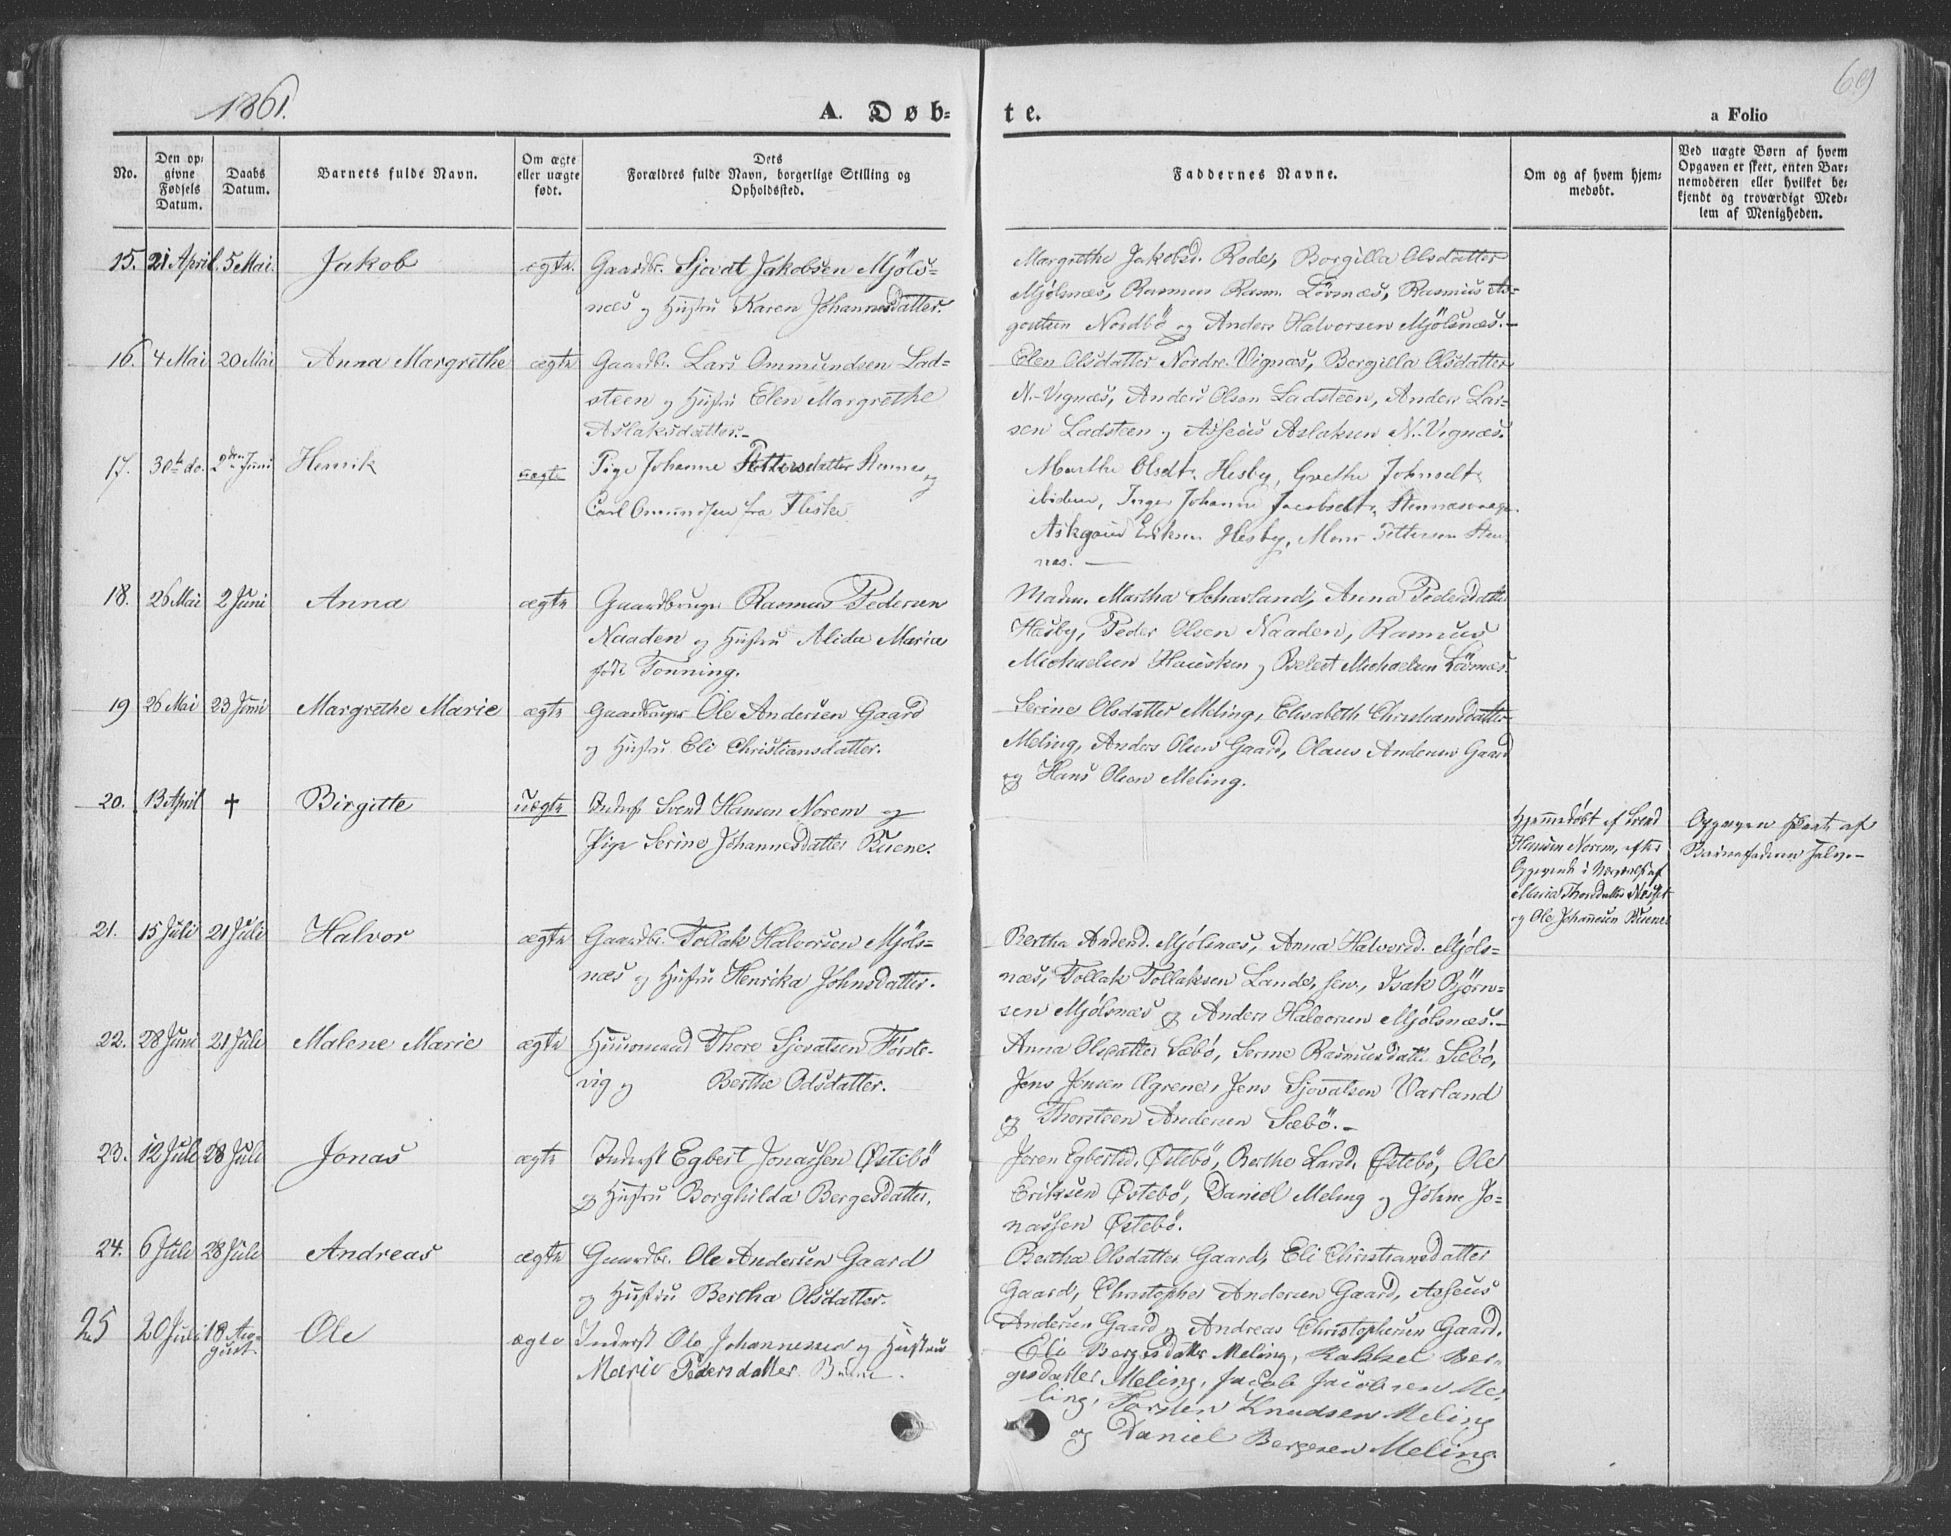 1861.
A. Døb-
te.
a Folio
69
No.
Den op-
givne
Fødsels
Datum.
Daabs
Datum.
Barnets fulde Navn.
Om ægte
eller uægte
født.
Dets
Forældres fulde Navn, borgerlige Stilling og
Opholdssted.
Faddernes Navne.
Om og af hvem hjem-
medøbt.
Ved uægte Børn af hvem
Opgaven er skeet, enten Bar-
nemoderen eller hvilket be-
kjendt og troværdigt Med-
lem af Menigheden.
15. 21 April. 5 Mai. Jakob ægte. Gaardbr. Sjovat Jakobsen Mjøls-
næs og Hustru Karen Johannesdatter.
Margrethe Jakobsd. Rode, Borgilla Olsdatter
Mjølsnæs, Rasmus Rasm. Lövnæs, Rasmus As-
gautsen Nordbö og Anders Halvorsen Mjölsnæs.-
16. 4 Mai 20 Mai Anna Margrethe ægte Gaardbr. Lars Ommundsen Lad-
steen og Hustru Elen Margrethe
Aslaksdatter.-
Elen Olsdatter Nordre-Vignæs, Borgilla Olsdatter
N.-Vignæs, Anders Olsen Ladsteen, Anders Lar-
sen Ladsteen og Asseus Aslaksen N.-Vignæs.
17. 30te do. 2den Juni Henrik uægte Pige Johanne Pettersdatter Stennes og
Carl Omundsen fra Fliske
Marthe Olsdt. Hesby, Grethe Johnsdt.
ibidem, Inger Johanne Jacobsdt.
Askgaud Eriksen Hesby, Mons Pettersen Sten
nes. -
18. 26 Mai 2 Juni Anna ægte Gaardbruger Rasmus Pedersen
Naaden og Hustru Alida Maria
født Tonning.
Madm. Martha Schavland, Anna Pedersdatter
Hesby, Peder Olsen Naaden, Rasmus
Michaelsen Hausken og Belest Michaelsen Lövnæs.
19 26 Mai 23 Juni Margrethe Marie ægte Gaardbruger Ole Andersen Gaard
og Hustru Eli Christiansdatter.
Serine Olsdatter Meling, Elisabeth Christiansdatter
Meling, Anders Olsen Gaard, Olaus Andersen Gaard
og Hans Olson Meling.
20. 13 April † Birgitte uægte Inderst Svend Hansen Norem og
Pige Serine Johannesdatter Buene.
Hjemmedøbt af Svend
Hansen Norem, efter
Opgivende i Nærværelse af
Maria Thorsdatter
og Ole Johannesen Buene.
Opgaven skeet af
Barnefaderen selv.-
21. 15 Juli 21 Juli Halvor ægte Gaardbr. Tollak Halvorsen Mjøls-
næs og Hustru Henrika Johnsdatter.
Bertha Andersd. Mjølsnæs, Anna Halvorsd. Mjøls-
næs, Tollak Tollaksen Lande, sen., Isak Bjørn-
sen Mjølsnæs og Anders Halvorsen Mjølsnæs.-
22. 28 Juni 21 Juli Malene Marie ægte Huusmand Thore Sjovatsen Förste-
vig og Berthe Odsdatter.
Anna Olsdatter Sæbö, Serine Rasmusdatter Sæbö,
Jens Jensen Øgrene, Jens Sjovatsen Varland
og Thorsteen Andersen Sæbö.-
23. 12 Juli 28 Juli Jonas ægte Inderst Egbert Jonassen Østebö
og Hustru Borghilda Bergesdatter.
Jøren Egbertsd. Østebö, Berthe Larsd. Østebö, Ole
Eriksen Østebö, Daniel Meling og Johne Jo-
nassen Østebö.
24. 6 Juli 28 Juli Andreas ægte Gaardbr. Ole Andersen Gaard
og Hustru Bertha Olsdatter.
Bertha Olsdatter Gaard, Eli Christiansdatter
Gaard, Christopher Andersen Gaard, Asseus
Andersen Gaard og Andreas Christophersen Gaard.
25 20 Juli 18 Au-
gust Ole ægte Inderst Ole Johannesen og Hustru
Marie Pedersdatter Buene.
Eli Bergesdatter Meling, Rakkel Ber-
gesdatter Meling, Jacob Jacobsen Me-
ling, Torsten Knudsen Meling
og Daniel Bergesen Meling.